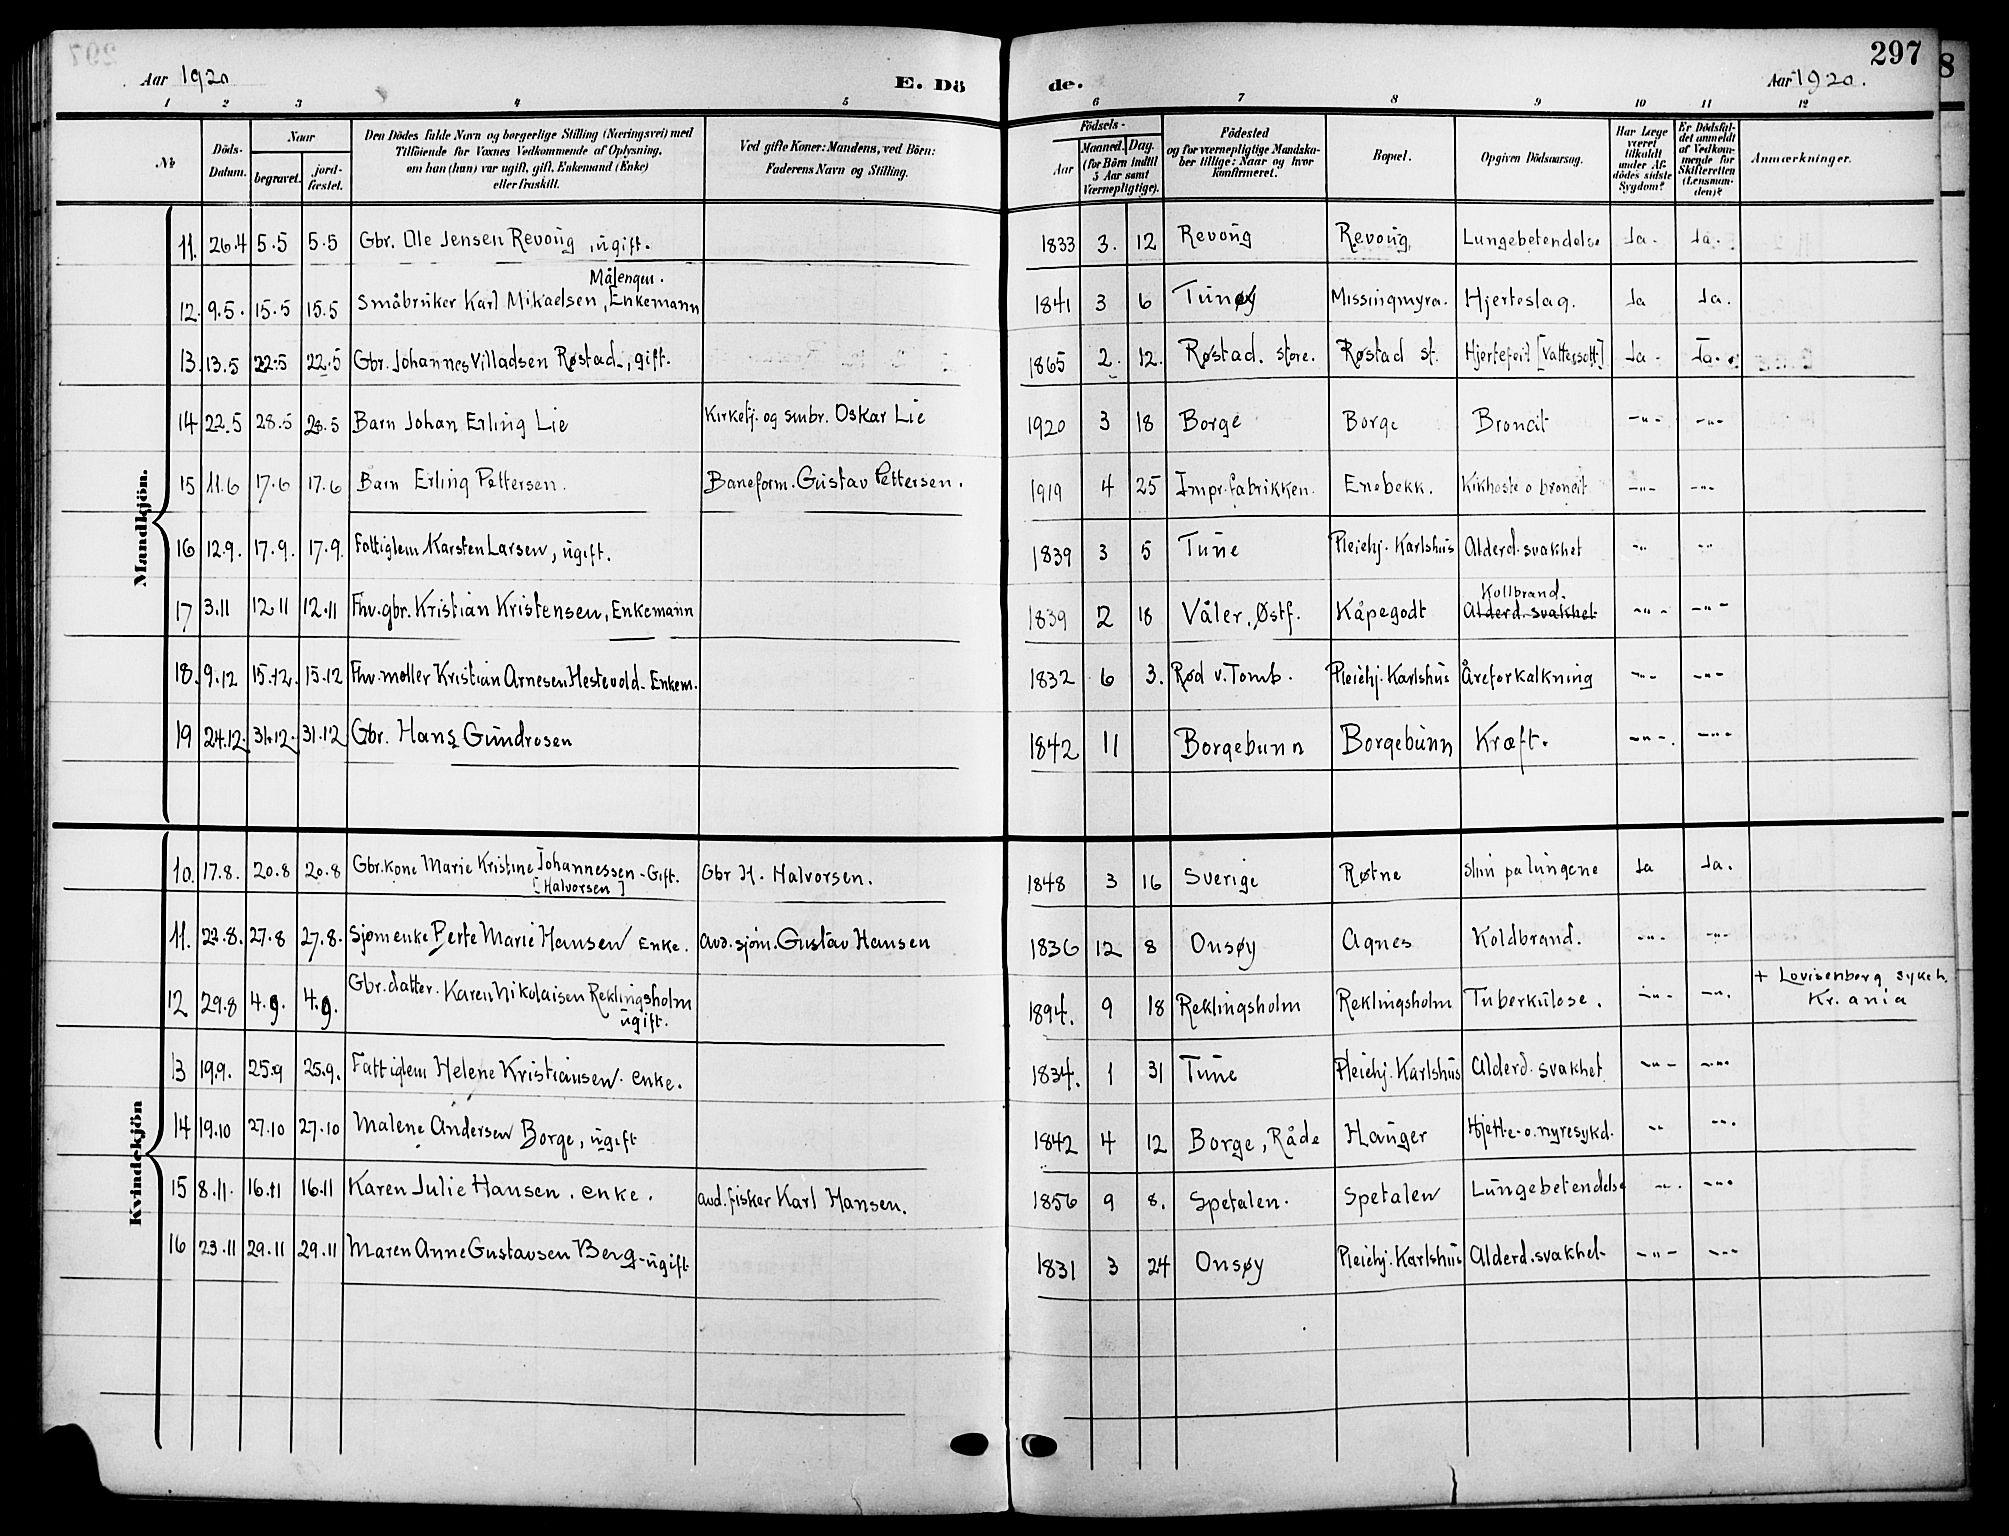 297
Aar 1920
E. Dö
de.
Aar 1920.
1 2 3 4 5 6 7 8 9 10 11 12
No
Döds-
Datum.
Naar
begravet.
jord-
fæstet.
Den Dödes fulde Navn og borgerlige Stilling (Næringsvei) med
Tilföiende for Voxnes Vedkommende af Oplysning,
om han (hun) var ugift, gift, Enkemand (Enke)
eller fraskilt.
Ved gifte Koner: Mandens, ved Börn:
Faderens Navn og Stilling.
Födsels-
Aar
Maaned. Dag.
(for Börn indtil
5 Aar samt
Værnepligtige).
Födested
og for værnepligtige Mandska-
ber tillige: Naar og hvor
Konfirmeret.
Bopæl.
Opgiven Dödsaarsag.
Har Læge
været
tilkaldt
under Af-
dödes sidste
Sygdom?
Er Dödsfal-
det anmeldt
af Vedkom-
mende for
Skifteretten
(Lensman-
den)?
Anmærkninger.
Mandkjön.
11. 26.4 5.5 5.5 Gbr. Ole Jensen Revoug, ugift. 1833 3. 12 Revoug Revoug, Lungebetendelse Ja. Ja.
Målengen.
12. 9.5. 15.5 15.5 Småbruker Karl Mikaelsen, Enkemann 1841 3 6 Tunøy Missingmyra. Hjerteslag. Ja Ja.
13. 13.5 22.5 22.5 Gbr. Johannes Villadsen Røstad, gift. 1865 2. 12. Røstad. store. Røstad st. Hjertefeil [Vattersott] Ja. Ja.
14 22.5 28.5 28.5 Barn Johan Erling Lie Kirketj. og smbr. Oskar Lie 1920 3 18 Borge Borge Broncit -"- -"-
15 11.6 17.6 17.6 Barn Erling Pettersen. Baneform. Gustav Pettersen. 1919 4 25 Impr.fabrikken. Enebekk. Kikhoste o broncit -"- -"-
16 12.9. 17.9. 17.9. Fattiglem Karsten Larsen, ugift. 1839 3 5 Tune Pleiehj. Karlshus Alderd. svakhet -"- -"-
Kollbrand.
17 3.11 12.11 12.11 Fhv. gbr. Kristian Kristensen, Enkemann 1839 2 18 Våler, Østf. Kåpegodt Alderd. svakhet -"- -"-
18. 9.12 15.12. 15.12 Fhv. møller Kristian Arnesen Hestevold. Enkem. 1832 6 3. Rød v. Tomb. Pleiehj. Karlshus Åreforkalkning -"- -"-
19 24.12. 31.12. 31.12 Gbr. Hans Gundrosen 1842 11 Borgebunn Borgebunn Kræft. -"- -"-
Kvindekjön
10. 17.8. 20.8 20.8 Gbr.kone Marie Kristine Johannessen - Gift. Gbr H. Halvorsen. 1848 3 16 Sverige Røtne Slim på lungene Ja Ja.
[Halvorsen]
11. 22.8. 27.8 27.8. Sjømenke Berte Marie Hansen enke. avd. sjøm. Gustav Hansen 1836 12 8 Onsøy Agnes Koldbrand. -"- -"-
12 29.8 4.9. 4.9. Gbr.datter. Karen Nikolaisen Reklingsholm 1894. 9 18 Reklingsholm Reklingsholm Tuberkulose. -"- -"- + Lovisenberg sykeh.
ugift. Kr. ania
13 19.9. 25.9 25.9. Fattiglem Helene Kristiansen. enke. 1834. 1 31 Tune Pleiehj. Karlshus Alderd. svakhet -"- -"-
14 19.10 27.10 27.10 Malene Andersen Borge, ugift 1842 4 12 Borge, Råde Hauger Hjerte- o. nyresykd. -"- -"-
15 8.11. 16.11 16.11 Karen Julie Hansen. enke. avd. fisker Karl Hansen. 1856 9 8. Spetalen. Spetalen Lungebetendelse -"- -"-
16 23.11 29.11 29.11 Maren Anne Gustavsen Berg - ugift 1831 3 24 Onsøy Pleiehj. Karlshus Alderd. svakhet -"- -"-